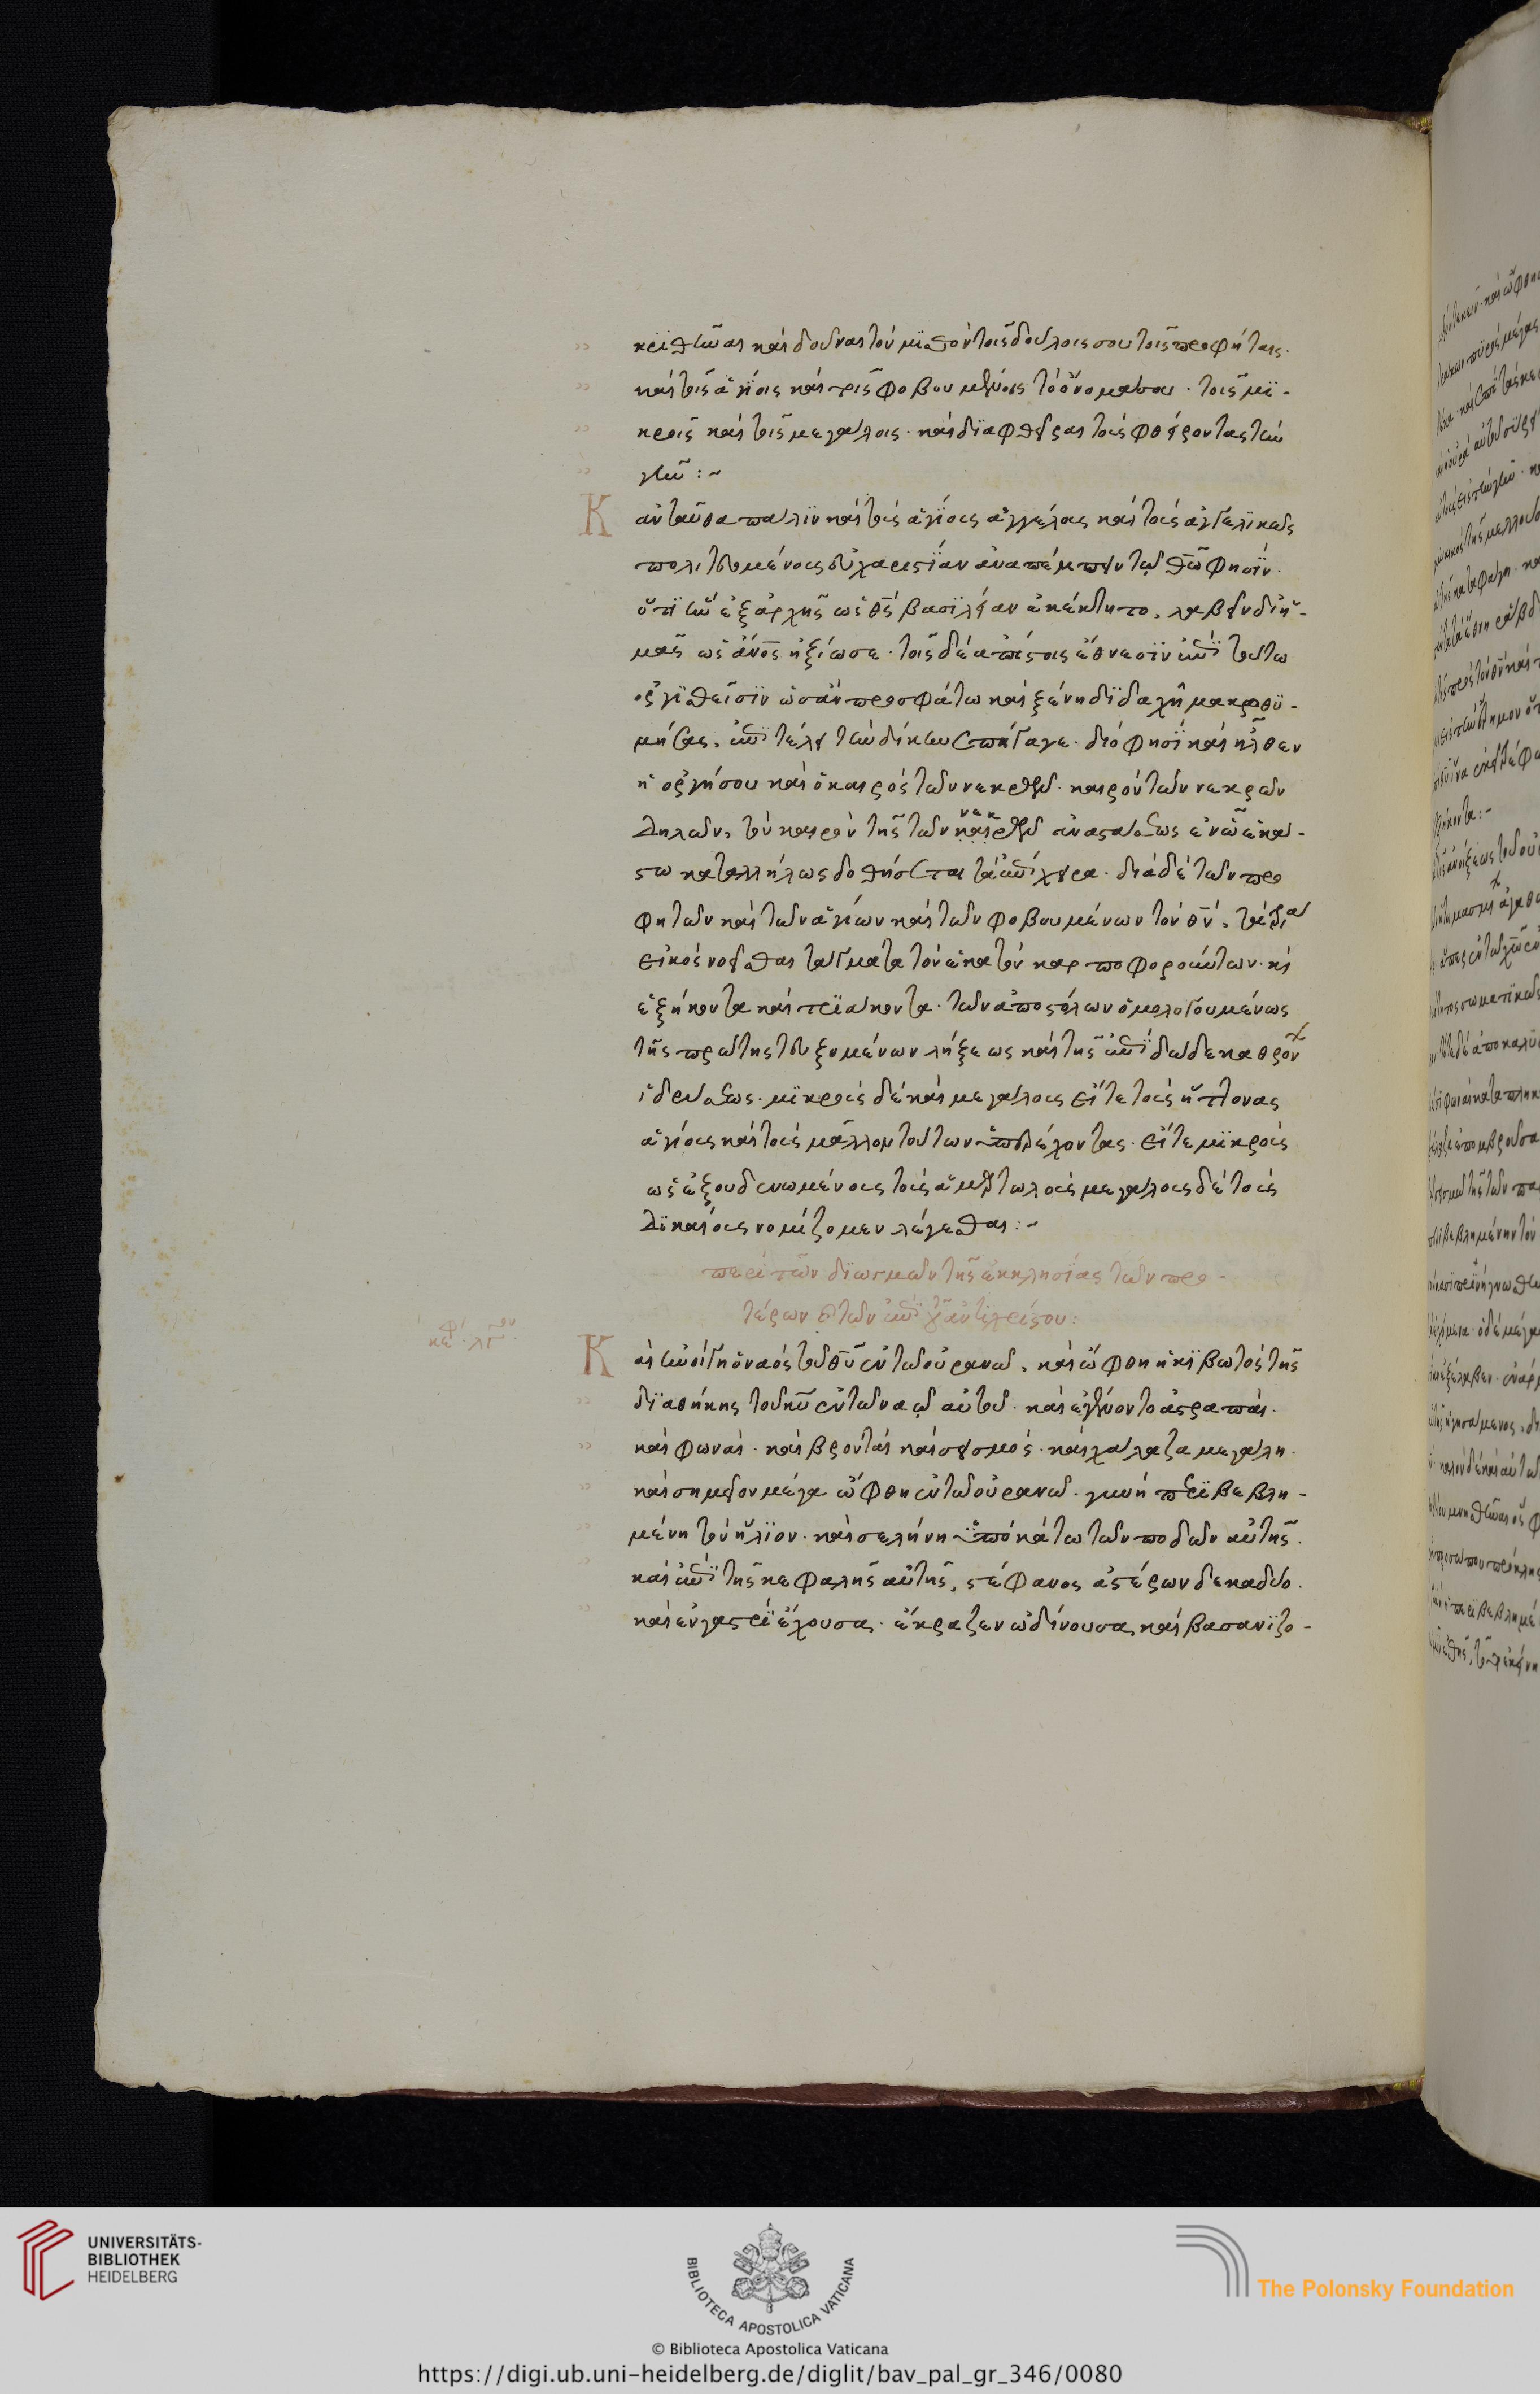 κριθῆναι καὶ δοῦναι τὸν μισθὸν τοῖς δούλοις σου τοῖς προφήταις·
καὶ τοῖς ἁγίοις καὶ τοῖς φοβουμένοις τὸ ὄνομά σου · τοῖς μϊ-
κροῖς καὶ τοῖς μεγάλοις · καὶ διαφθεῖραι τοὺς φθείροντας τὴν
γῆν :~
Κἀνταῦθα πάλιν καὶ τοὺς ἁγίους ἀγγέλους καὶ τοὺς ἀγγελικῶς
πολιτευομένους εὐχαριστίαν ἀναπέμπειν τῷ θῶ φησίν·
ὅτι ἣν ἐξ ἀρχῆς ὡς θς βασιλείαν ἐκέκτητο, λαβεῖν δι' ἡ-
μᾶς ὡς ἄνος ἠξίωσε · τοῖς δὲ ἀπίστοις ἔθνεσιν ἐπὶ τούτω
ὀργισθεῖσιν ὡσὰν προσφάτω καὶ ξένη διδαχῆ μακροθυ-
μήσας, ἐπὶ τέλει τὴν δίκην ἐπήγαγε · διό φησι καὶ ἦλθεν
ἡ ὀργή σου καὶ ὁ καιρὸς τῶν νεκρῶν · καιρὸν τῶν νεκρῶν
δηλῶν, τὸν καιρὸν τῆς τῶν νεκρῶν ἀναστάσεως ἐν ὧ ἑκά-
στω καταλλήλως δοθήσεται τὰ ἐπίχειρα · διὰ δὲ τῶν προ
φητῶν καὶ τῶν ἁγίων καὶ τῶν φοβουμένων τὸν θν, τὰ τρία
εἰκὸς νοεῖσθαι τάγματα τὸν ἑκατὸν καρποφορούντων · καὶ
ἑξήκοντα καὶ τριάκοντα · τῶν ἀποστόλων ὁμολογουμένως
τῆς πρώτης τευξομένων λήξεως καὶ τῆς ἐπὶ δώδεκα θρόν
ἱδρύσεως · μικροὺς δὲ καὶ μεγάλους εἴτε τοὺς ἥττονας
ἁγίους καὶ τοὺς μᾶλλον τούτων ὑπερέχοντας · εἴτε μϊκροὺς
ὡς ἐξουδενωμένους τοὺς ἁμαρτωλοὺς μεγάλους δὲ τοὺς
δικαίους νομίζομεν λέγεσθαι :~
περὶ τῶν διωγμῶν τῆς ἐκκλησίας τῶν προ-
τέρων καὶ τῶν ἐπὶ τοῦ ἀντιχρίστου :
Καὶ ἠνοίγη ὁ ναὸς τοῦ θυ ἐν τῶ οὐρανῶ, καὶ ὤφθη ἡ κιβωτὸς τῆς
διαθήκης τοῦ κυ ἐν τῶ ναῶ αὐτοῦ · καὶ ἐγένοντο ἀστραπαὶ ·
καὶ φωναὶ · καὶ βρονταὶ καὶ σεισμὸς · καὶ χάλαζα μεγάλη ·
καὶ σημεῖον μέγα ὤφθη ἐν τῶ οὐρανῶ · γυνὴ περιβεβλη-
μένη τὸν ἥλιον · καὶ σελήνη ὑποκάτω τῶν ποδῶν αὐτῆς ·
καὶ ἐπὶ τῆς κεφαλῆς αὐτῆς, στέφανος ἀστέρων δεκαδύο ·
καὶ ἐν γαστρὶ ἔχουσα · ἔκραζεν ὠδίνουσα, καὶ βασανιζο-
UNIVERSITÄTS-
BIBLIOTHEK
HEIDELBERG
BIBLIOTECA APOSTOLICA VATICANA
The Polonsky Foundation
© Biblioteca Apostolica Vaticana
https://digi.ub.uni-heidelberg.de/diglit/bav_pal_gr_346/0080